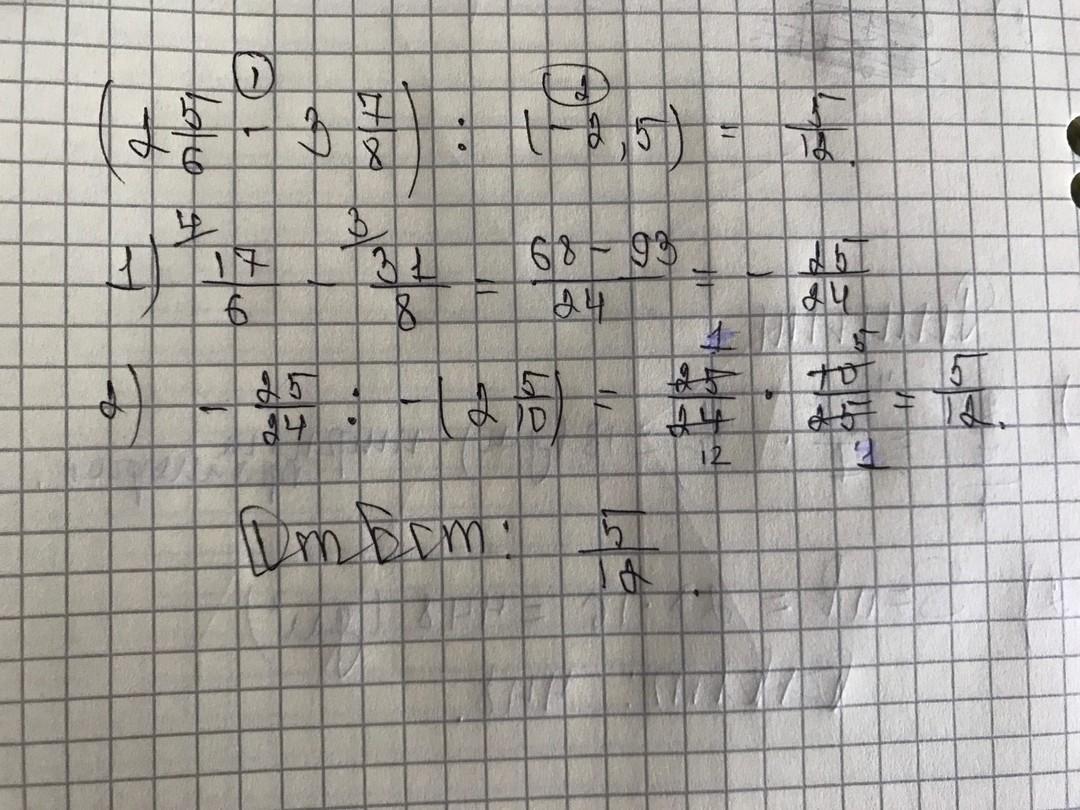 (2 5/6 - 3 7/8) : (-2,5) = 5/12.
1) 17/6 - 31/8 = 68-93/24 = - 25/24
2) - 25/24 : -(2 5/10) = 25/24 · 10/25 = 5/12.
Ответ: 5/12.